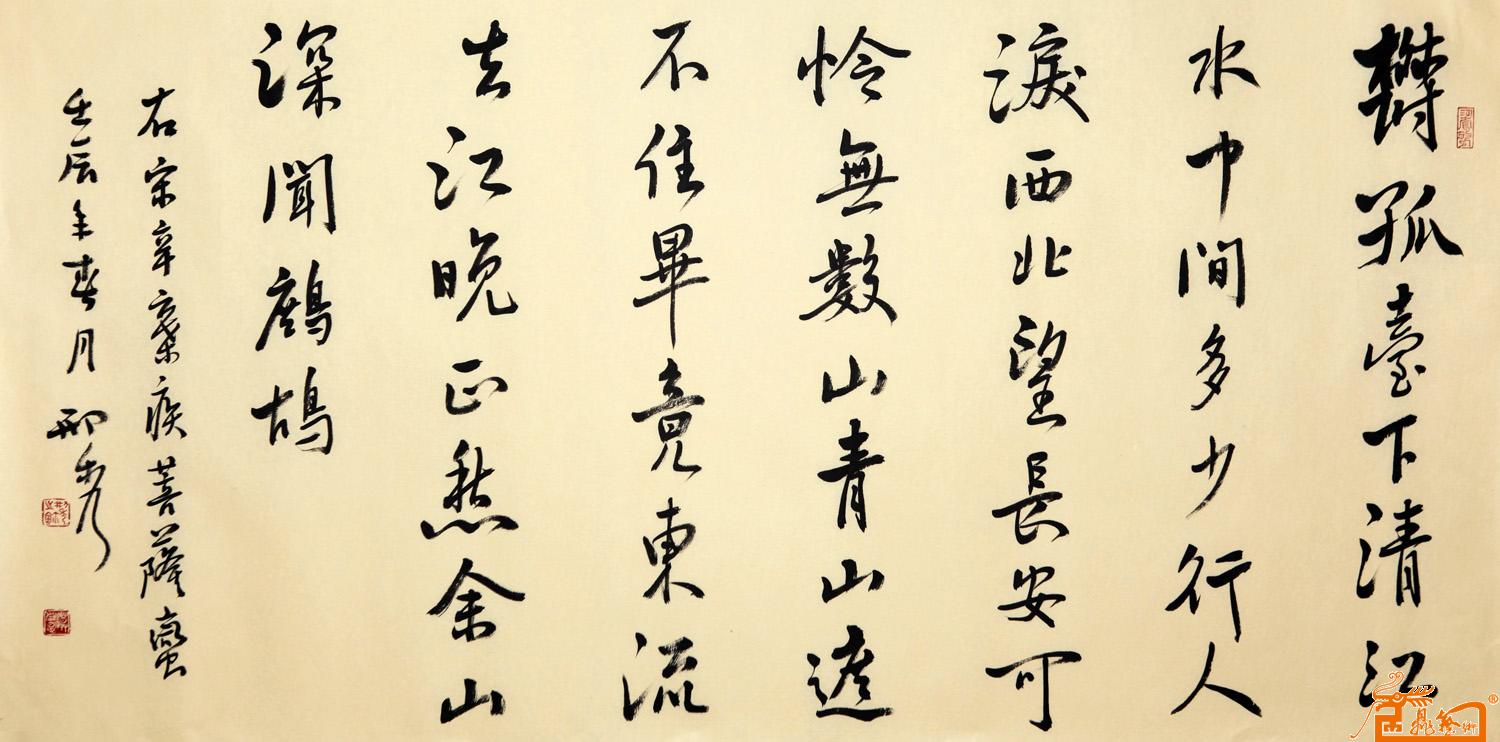 欝孤臺下清江
水中間多少行人
淚西北望長安可
怜無數山青山遮
不住畢竟東流
去江晚正愁余山
深聞鷓鴣
右宋辛棄疾菩薩蠻
壬辰年春月 邢秀